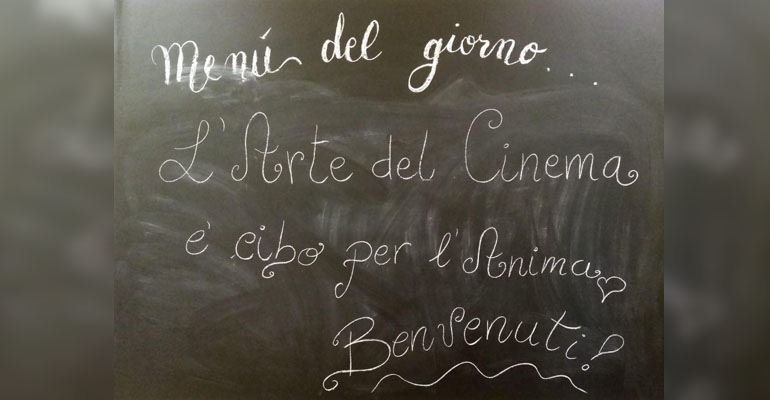 Menú del giorno...
L'Arte del Cinema
e' cibo per l'Anima
Benvenuti!